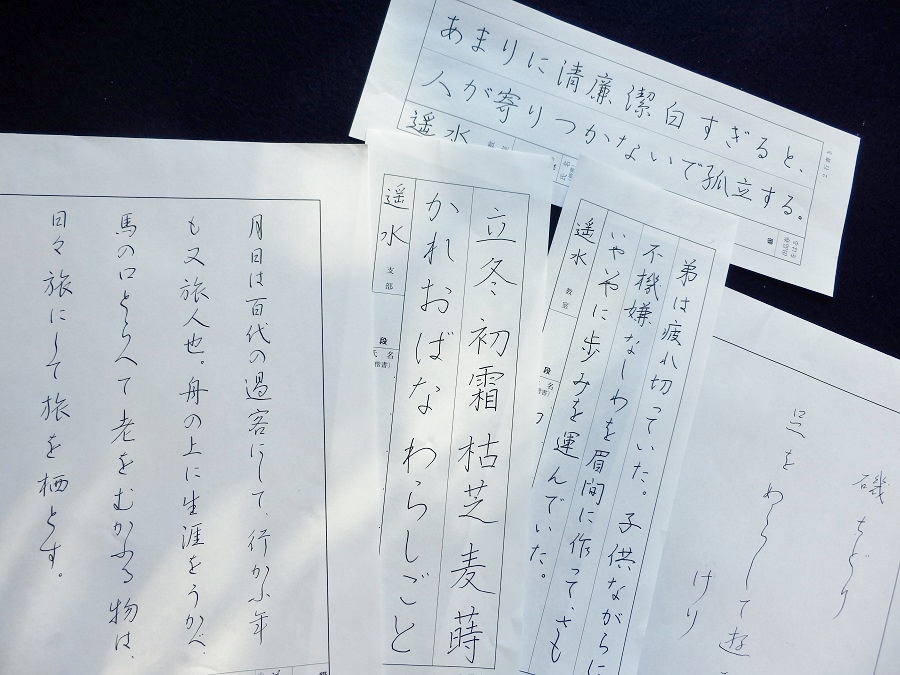 あまりに清廉潔白すぎると、
人が寄りつかないで孤立する。
遥水
月日は百代の過客にして、行かふ年
も又旅人也。舟の上に生涯をうかべ
馬の口とらへて老をむかふる物は、
日々旅にして旅を栖とす。
立冬初霜枯芝麦蒔
かれおばなわらしごと
遥水 支部
段
氏名
(楷書)
弟は疲れ切っていた。子供ながらに
不機嫌なしわを眉間に作って、さも
に歩みを運んでいた。
遥水 教室
段
名
磯ちどり
足をぬらして遊
けり